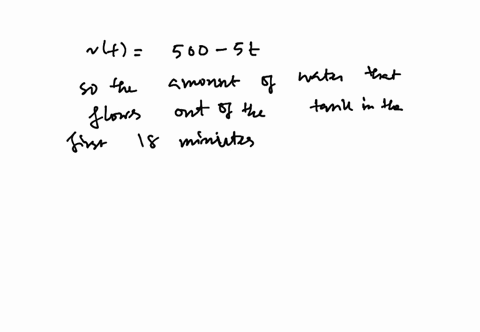 r(t) = 500 - 5t
so the amount of water that
flows out of the tank in the
first 18 minutes